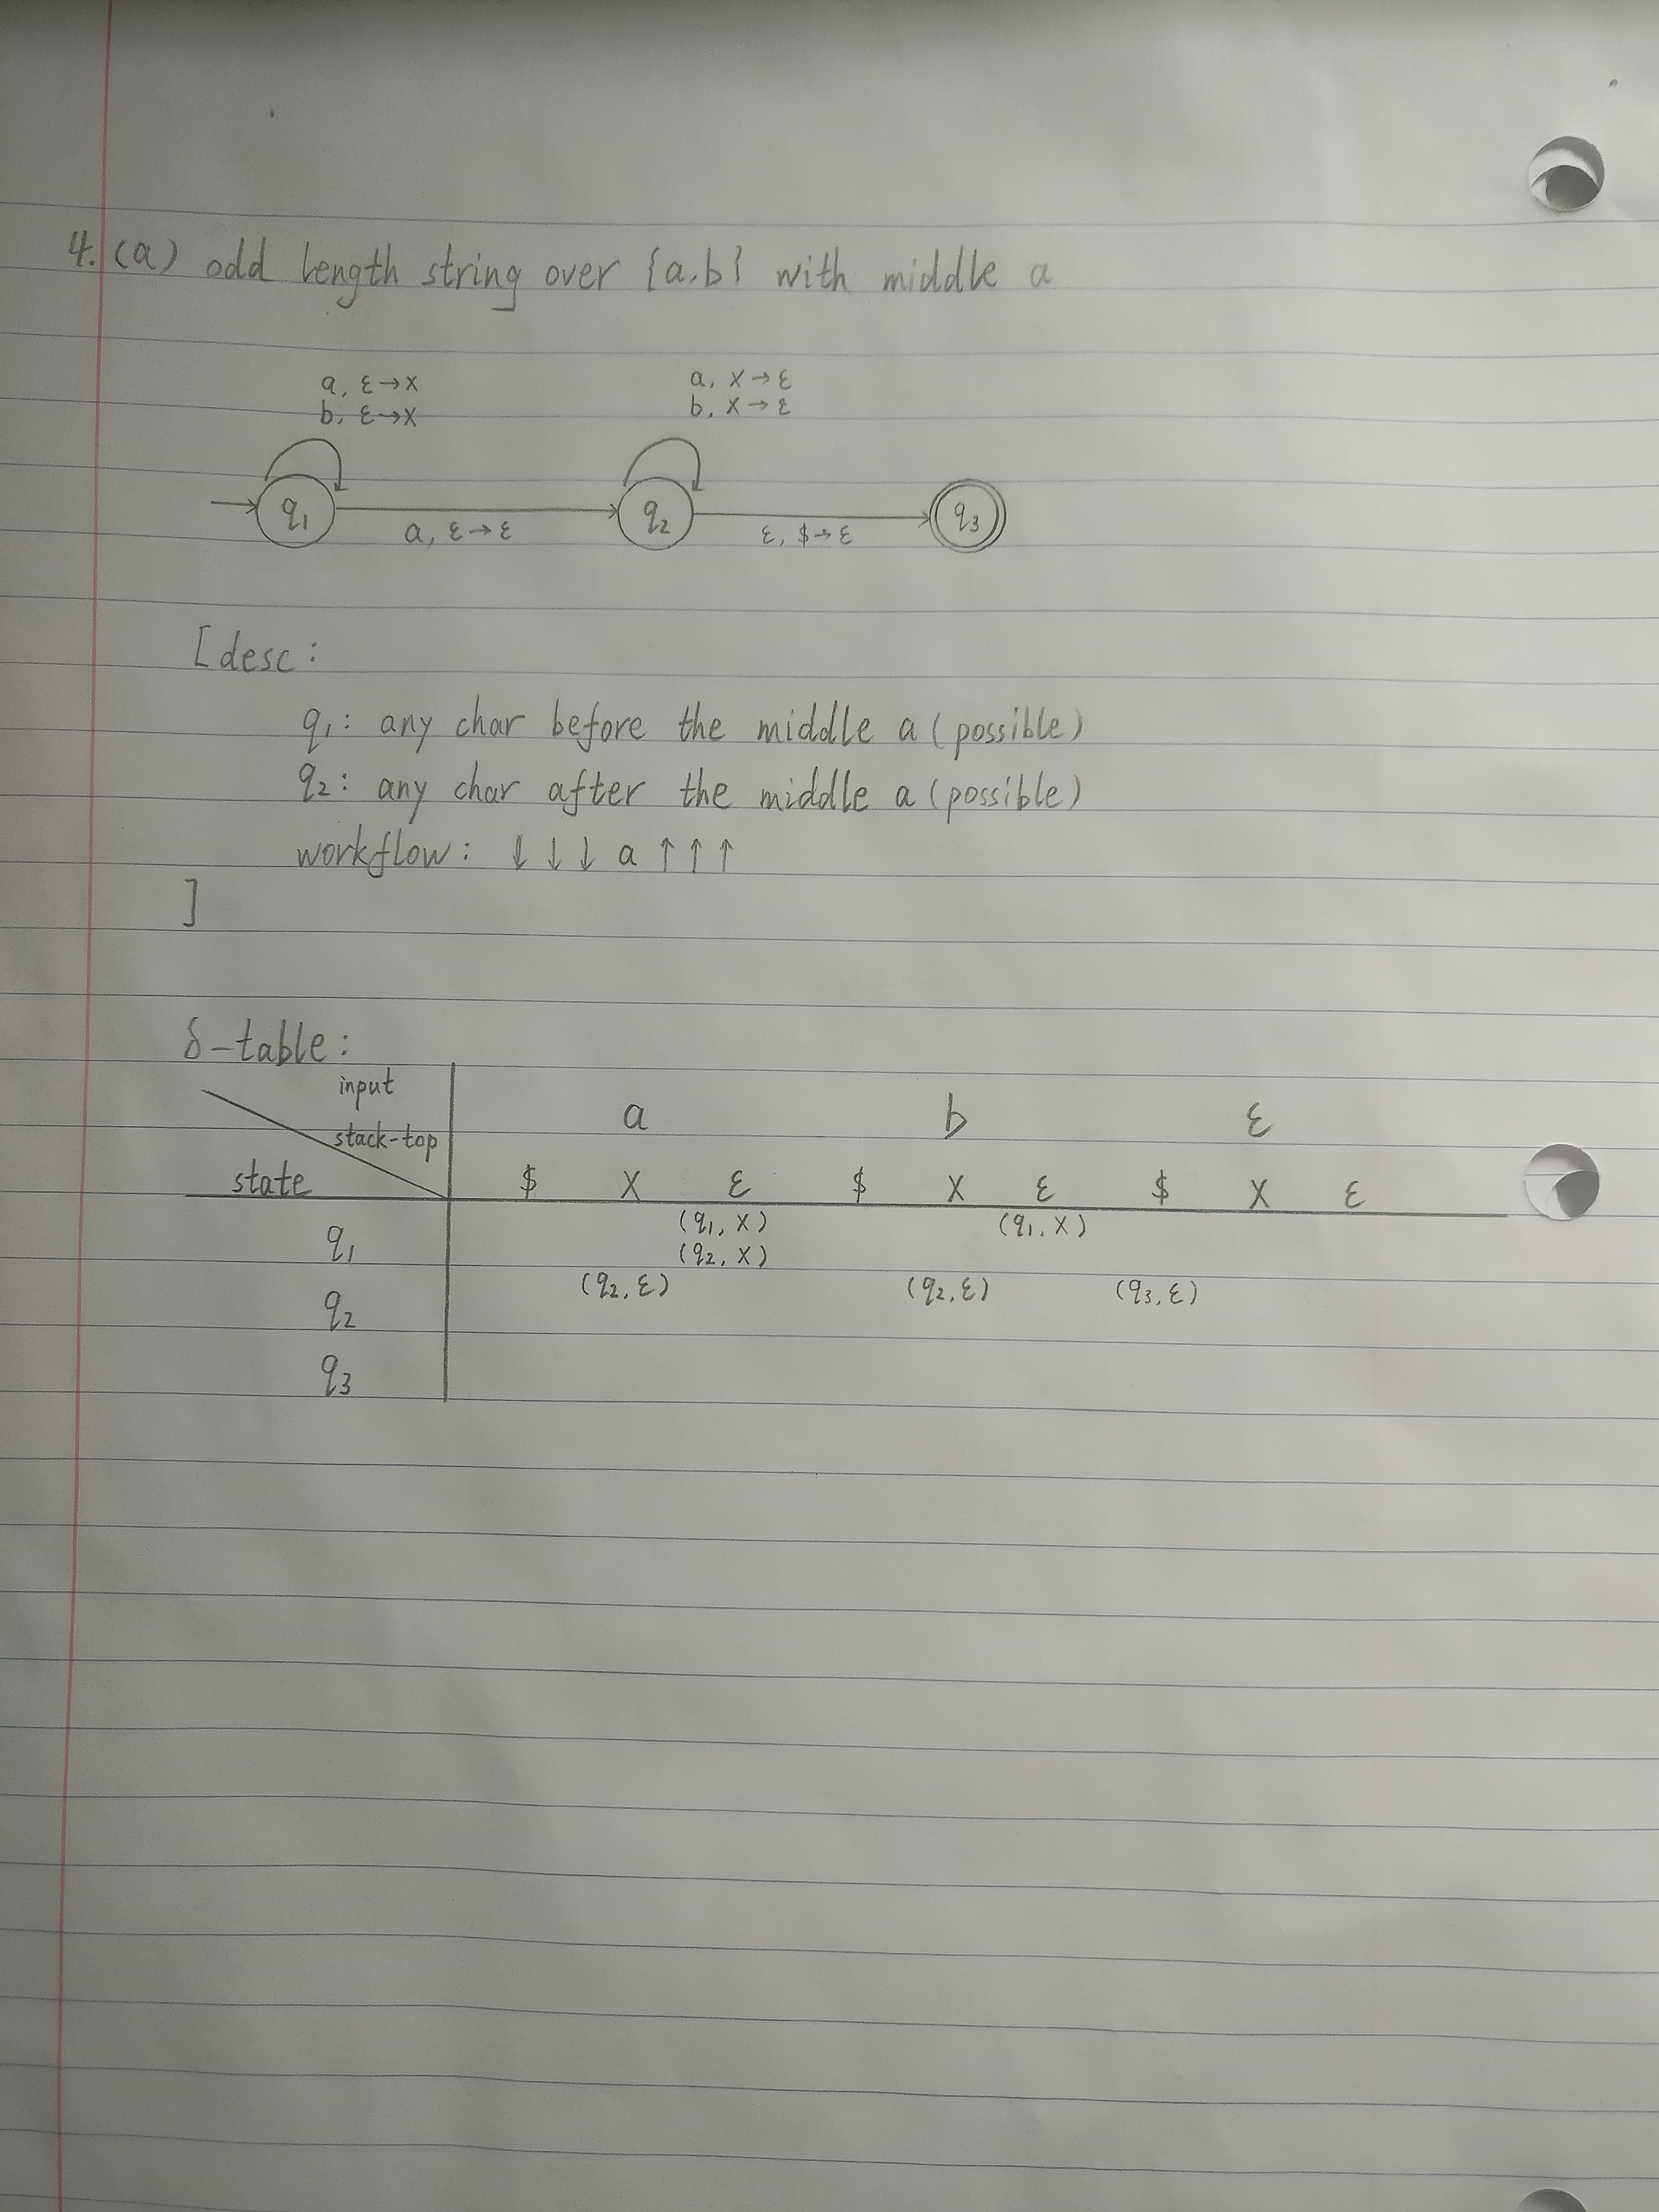 4. (a) odd length string over {a,b} with middle a
a, ε→X
b, ε→X
a, X→ε
b, X→ε
q₁
q₂
q₃
a, ε→ε
ε, $→ε
[desc:
q₁: any char before the middle a (possible)
q₂: any char after the middle a (possible)
workflow: ↓ ↓ ↓ a ↑ ↑ ↑
]
δ-table:
input
stack-top
state
a b ε
$ X ε $ X ε $ X ε
q₁ (q₁, X) (q₁, X)
(q₂, X)
q₂ (q₂, ε) (q₂, ε) (q₃, ε)
q₃